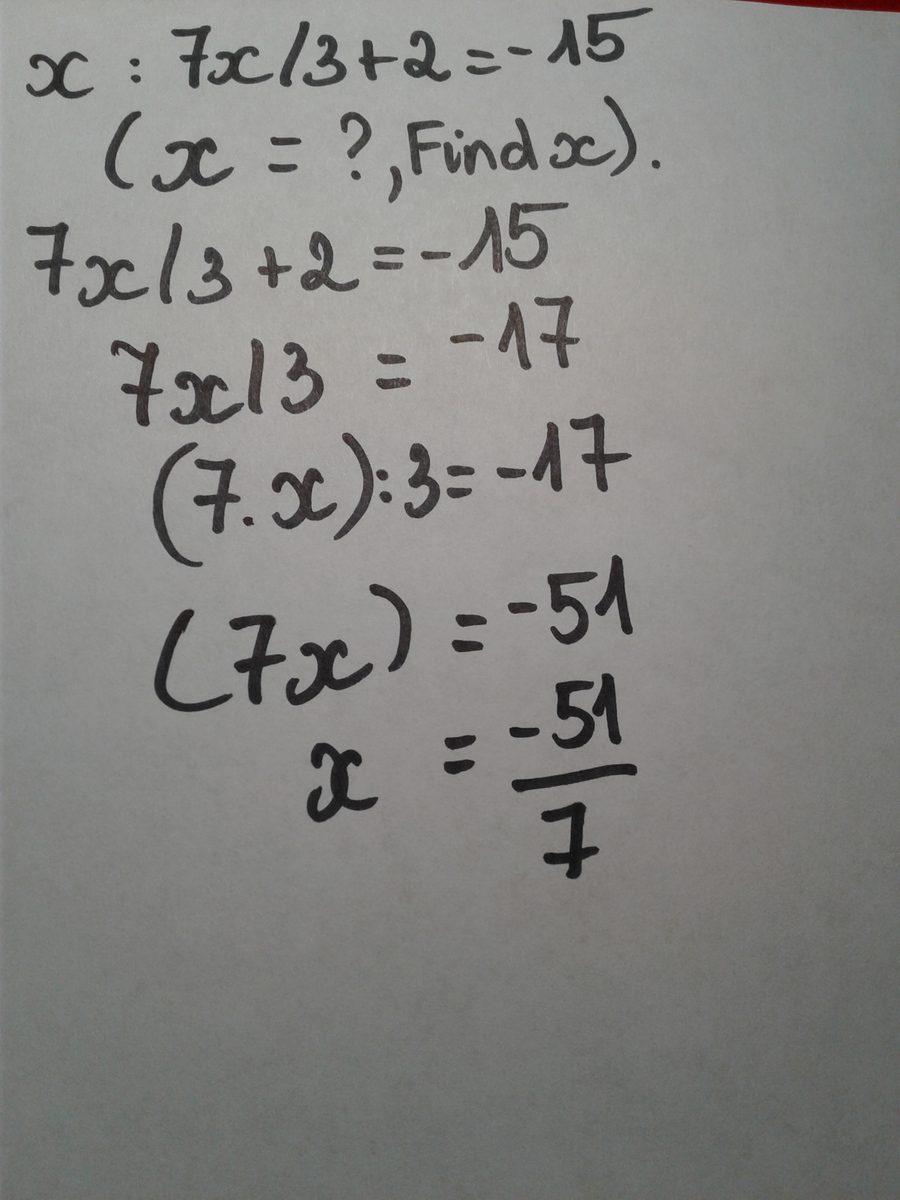 x : 7x/3+2=-15
(x = ?, Find x).
7x/3+2=-15
7x/3 = -17
(7.x):3=-17
(7x) = -51
x = -51
7